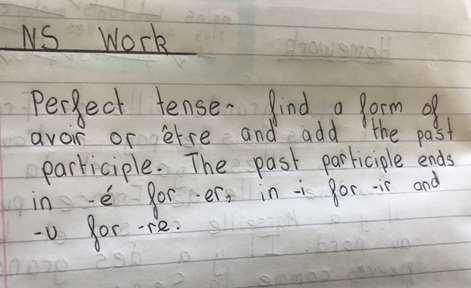 NS Work
Perfect tense - find a form of
avoir or être and add the past
participle. The past participle ends
in -é for -er, in -i for -ir and
-u for -re.